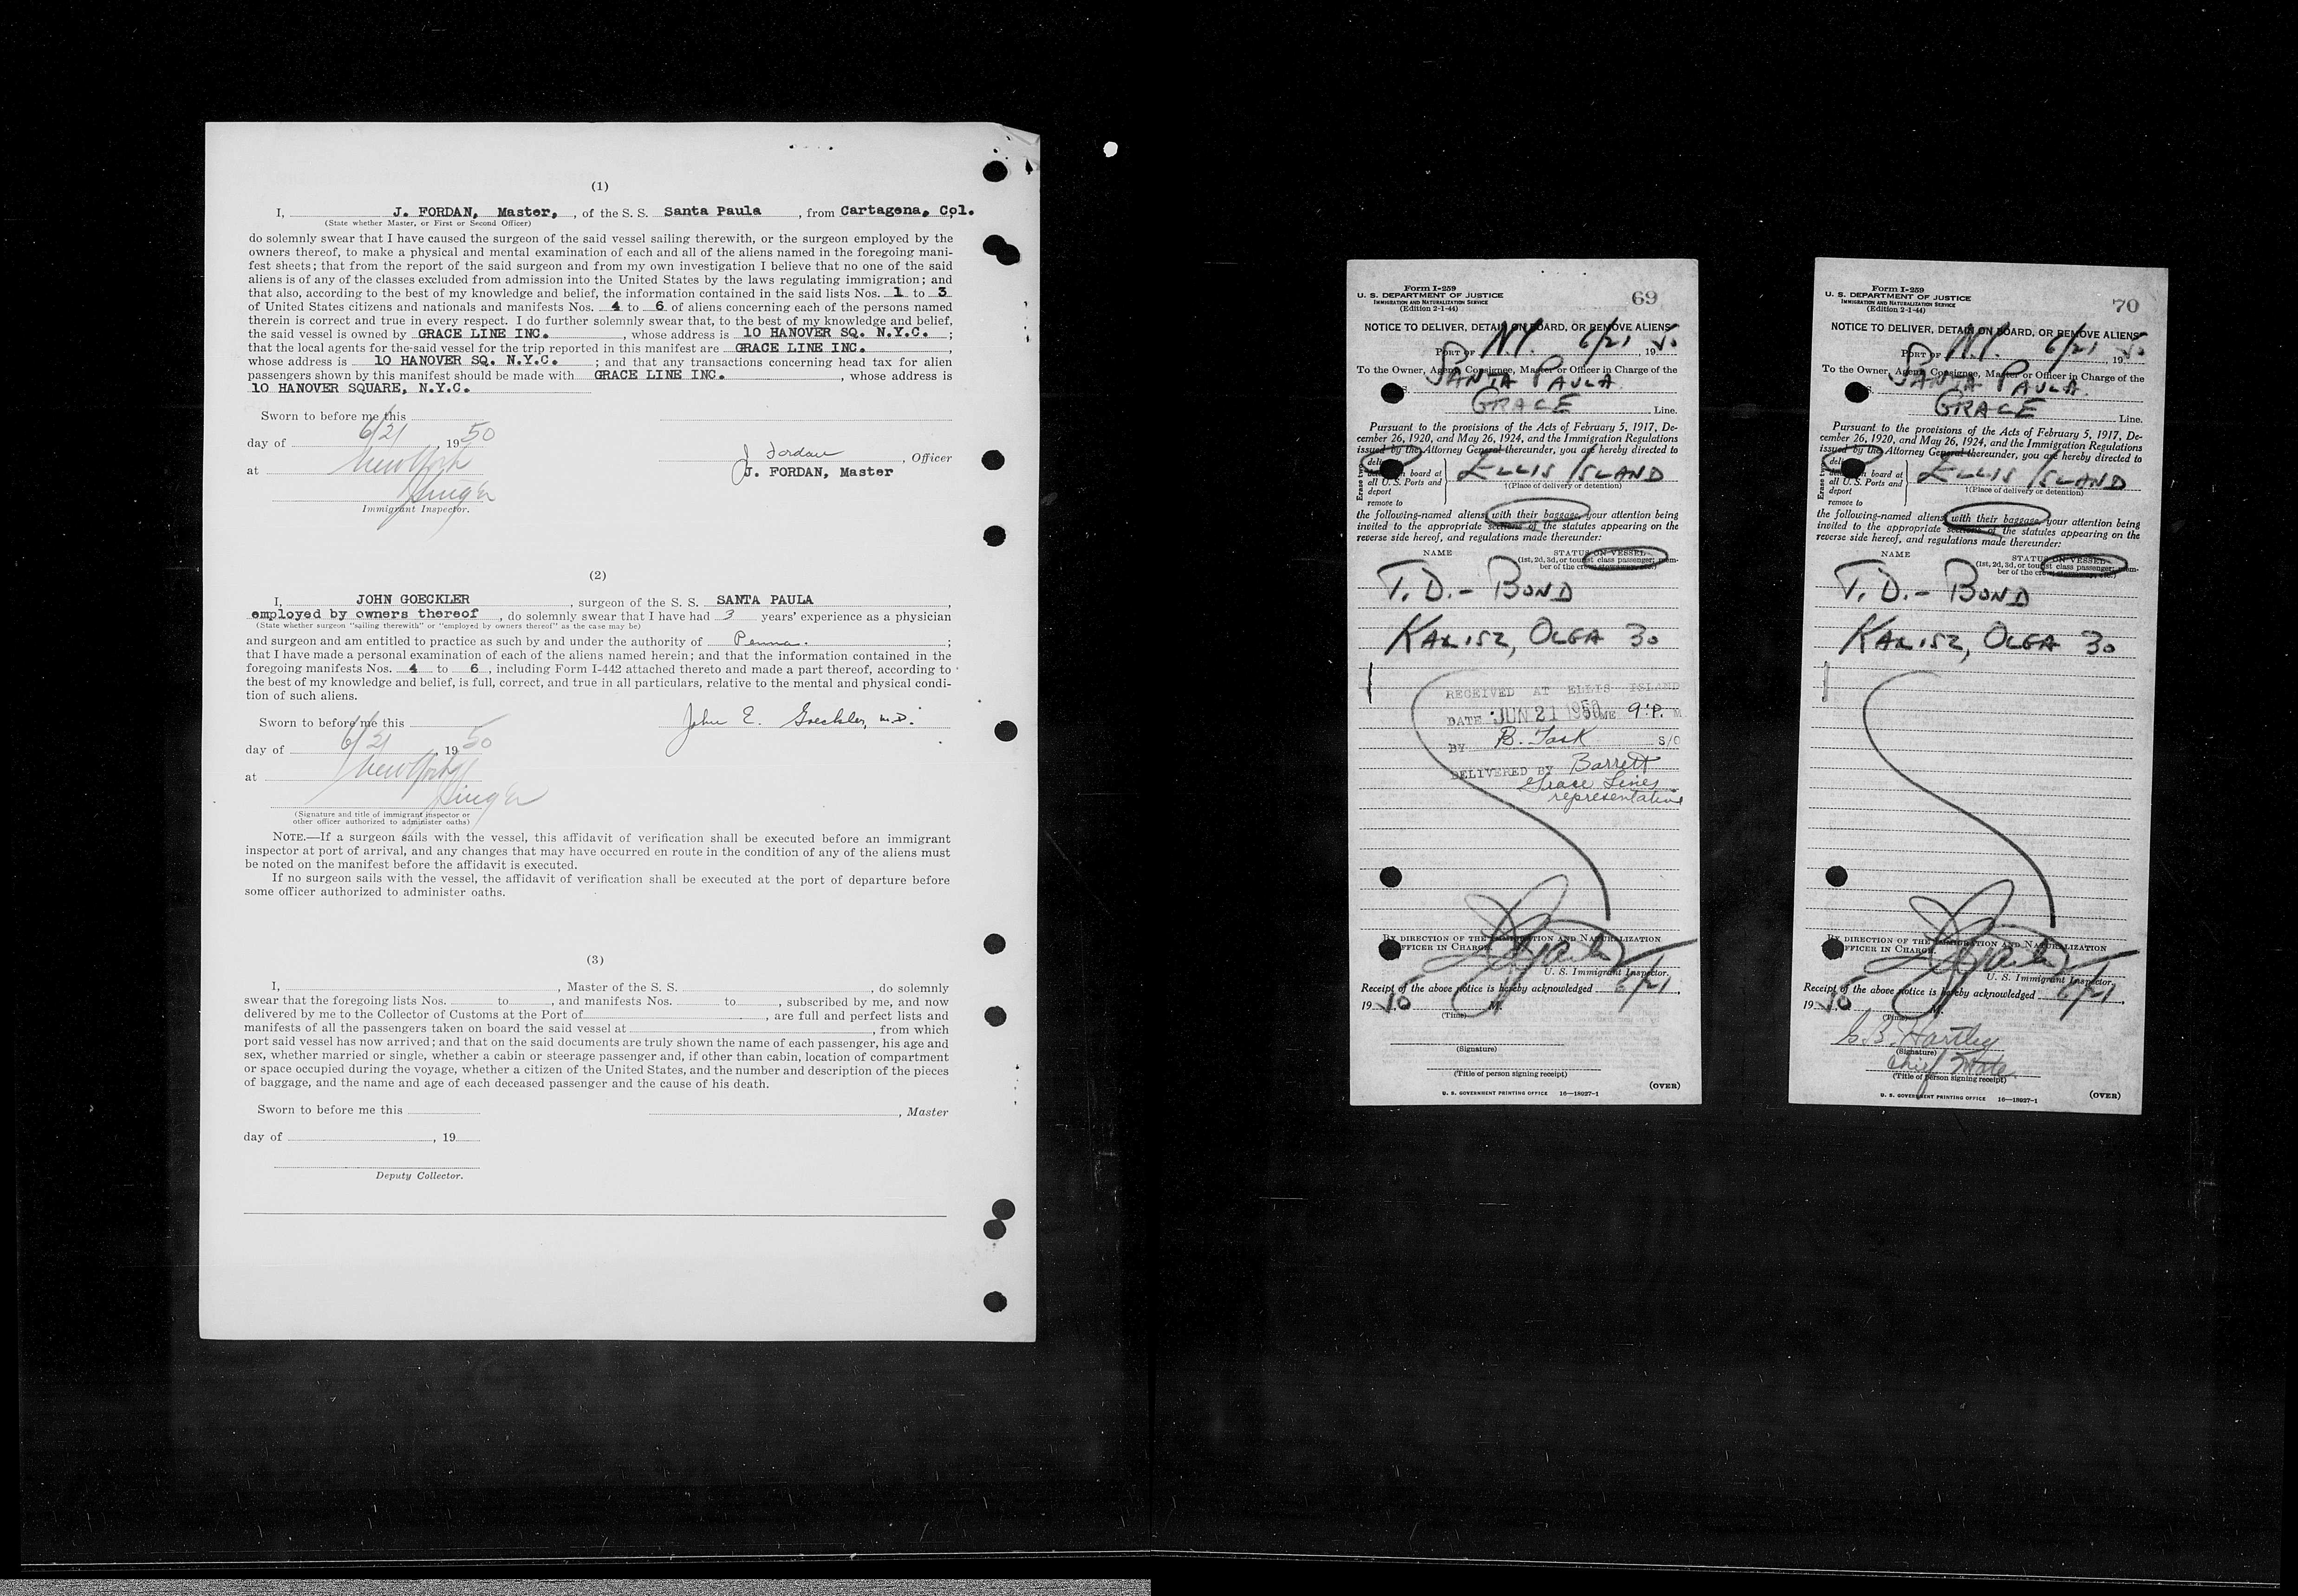 (1)
I, J. FORDAN, Master, , of the S. S. Santa Paula , from Cartagena, Col.
(State whether Master, or First or Second Officer)
do solemnly swear that I have caused the surgeon of the said vessel sailing therewith, or the surgeon employed by the
owners thereof, to make a physical and mental examination of each and all of the aliens named in the foregoing mani-
fest sheets; that from the report of the said surgeon and from my own investigation I believe that no one of the said
aliens is of any of the classes excluded from admission into the United States by the laws regulating immigration; and
that also, according to the best of my knowledge and belief, the information contained in the said lists Nos. 1 to 3
of United States citizens and nationals and manifests Nos. 4 to 6 of aliens concerning each of the persons named
therein is correct and true in every respect. I do further solemnly swear that, to the best of my knowledge and belief,
the said vessel is owned by GRACE LINE INC. , whose address is 10 HANOVER SQ. N.Y.C. ;
that the local agents for the said vessel for the trip reported in this manifest are GRACE LINE INC. ,
whose address is 10 HANOVER SQ. N.Y.C. ; and that any transactions concerning head tax for alien
passengers shown by this manifest should be made with GRACE LINE INC. , whose address is
10 HANOVER SQUARE, N.Y.C.
Sworn to before me this
day of 6/21 , 1950
J Fordan , Officer
at New York
J. FORDAN, Master
Singer
Immigrant Inspector.
(2)
I, JOHN GOECKLER , surgeon of the S. S. SANTA PAULA ,
employed by owners thereof , do solemnly swear that I have had 3 years' experience as a physician
(State whether surgeon "sailing therewith" or "employed by owners thereof" as the case may be)
and surgeon and am entitled to practice as such by and under the authority of Penna. ;
that I have made a personal examination of each of the aliens named herein; and that the information contained in the
foregoing manifests Nos. 4 to 6 , including Form I-442 attached thereto and made a part thereof, according to
the best of my knowledge and belief, is full, correct, and true in all particulars, relative to the mental and physical condi-
tion of such aliens.
Sworn to before me this
John E. Goeckler, M.D.
day of 6/21 , 1950
at New York
Singer
(Signature and title of immigrant inspector or
other officer authorized to administer oaths)
NOTE.—If a surgeon sails with the vessel, this affidavit of verification shall be executed before an immigrant
inspector at port of arrival, and any changes that may have occurred en route in the condition of any of the aliens must
be noted on the manifest before the affidavit is executed.
If no surgeon sails with the vessel, the affidavit of verification shall be executed at the port of departure before
some officer authorized to administer oaths.
(3)
I, , Master of the S. S. , do solemnly
swear that the foregoing lists Nos. to , and manifests Nos. to , subscribed by me, and now
delivered by me to the Collector of Customs at the Port of , are full and perfect lists and
manifests of all the passengers taken on board the said vessel at , from which
port said vessel has now arrived; and that on the said documents are truly shown the name of each passenger, his age and
sex, whether married or single, whether a cabin or steerage passenger and, if other than cabin, location of compartment
or space occupied during the voyage, whether a citizen of the United States, and the number and description of the pieces
of baggage, and the name and age of each deceased passenger and the cause of his death.
Sworn to before me this
, Master
day of , 19
Deputy Collector.
Form I-259
U. S. DEPARTMENT OF JUSTICE
IMMIGRATION AND NATURALIZATION SERVICE
(Edition 2-1-44)
69
NOTICE TO DELIVER, DETAIN ON BOARD, OR REMOVE ALIENS
PORT OF N.Y. 6/21 , 1950
To the Owner, Agent, Consignee, Master or Officer in Charge of the
SANTA PAULA
GRACE Line.
Pursuant to the provisions of the Acts of February 5, 1917, De-
cember 26, 1920, and May 26, 1924, and the Immigration Regulations
issued by the Attorney General thereunder, you are hereby directed to
Erase two
deli
n board at
all U. S. Ports and
deport
remove to
ELLIS ISLAND
†(Place of delivery or detention)
the following-named aliens with their baggage, your attention being
invited to the appropriate sections of the statutes appearing on the
reverse side hereof, and regulations made thereunder:
NAME
STATUS ON VESSEL
(1st, 2d, 3d, or tourist class passenger; mem-
ber of the crew
T. D. - BOND
KALISZ, OLGA 30
RECEIVED AT ELLIS ISLAND
DATE JUN 21 1950 TIME 9 P. M
BY B. Task S/O
DELIVERED BY Barrett
Grace Lines
representative
BY DIRECTION OF THE IMMIGRATION AND NATURALIZATION
OFFICER IN CHARGE
U. S. Immigrant Inspector.
Receipt of the above notice is hereby acknowledged 6/21 ,
1950 M.
(Time)
(Signature)
(Title of person signing receipt)
(OVER)
U. S. GOVERNMENT PRINTING OFFICE 16—18027-1
Form I-259
U. S. DEPARTMENT OF JUSTICE
IMMIGRATION AND NATURALIZATION SERVICE
(Edition 2-1-44)
70
NOTICE TO DELIVER, DETAIN ON BOARD, OR REMOVE ALIENS
PORT OF N.Y. 6/21 , 1950
To the Owner, Agent, Consignee, Master or Officer in Charge of the
SANTA PAULA
GRACE Line.
Pursuant to the provisions of the Acts of February 5, 1917, De-
cember 26, 1920, and May 26, 1924, and the Immigration Regulations
issued by the Attorney General thereunder, you are hereby directed to
Erase two
deli
n board at
all U. S. Ports and
deport
remove to
ELLIS ISLAND
†(Place of delivery or detention)
the following-named aliens with their baggage, your attention being
invited to the appropriate sections of the statutes appearing on the
reverse side hereof, and regulations made thereunder:
NAME
STATUS ON VESSEL
(1st, 2d, 3d, or tourist class passenger; mem-
ber of the crew
T. D. - BOND
KALISZ, OLGA 30
BY DIRECTION OF THE IMMIGRATION AND NATURALIZATION
OFFICER IN CHARGE
U. S. Immigrant Inspector.
Receipt of the above notice is hereby acknowledged 6/21 ,
1950 M.
(Time)
G. B. Hartley
(Signature)
Chief Mate
(Title of person signing receipt)
(OVER)
U. S. GOVERNMENT PRINTING OFFICE 16—18027-1